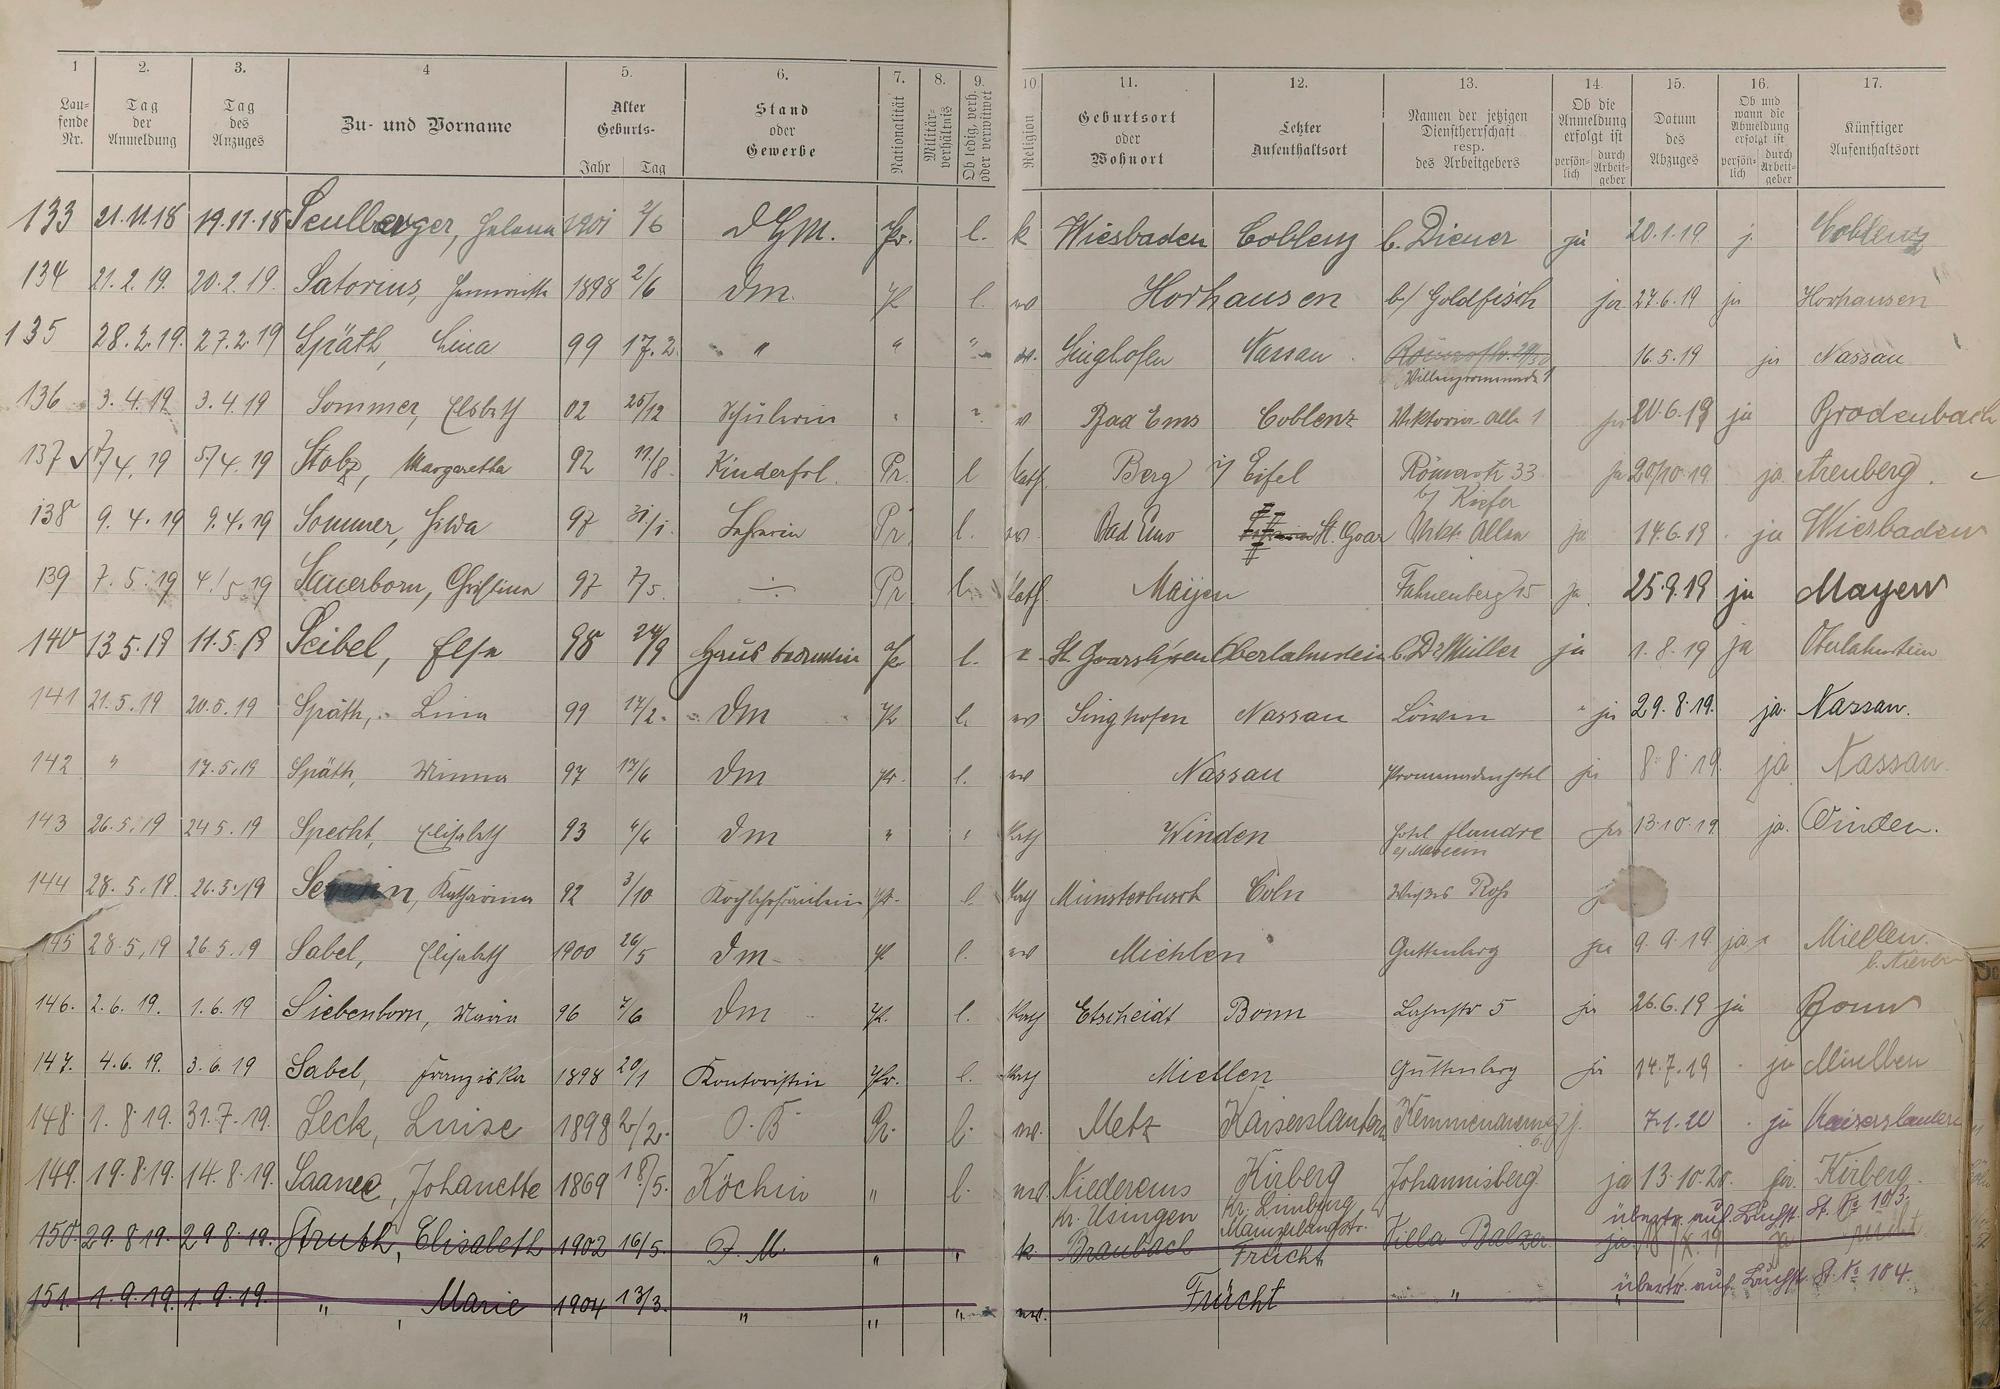 1 2. 3. 4 5. 6. 7. 8. 9. 10 11. 12. 13. 14 15. 16. 17.
Laufende Nr. Tag der Anmeldung Tag des Anzuges Zu- und Vorname Alter Geburts- Jahr Tag Stand oder Gewerbe Nationalität Militärverhältnis Ob ledig, verh. oder verwitwet Religion Geburtsort oder Wohnort Letzter Aufenthaltsort Namen der jetzigen Dienstherrschaft resp. des Arbeitgebers Ob die Anmeldung erfolgt ist persönlich durch Arbeitgeber Datum des Abzuges Ob und wann die Abmeldung erfolgt ist persönlich durch Arbeitgeber Künftiger Aufenthaltsort
133 21.11.18 19.11.18 Seulberger, Helena 1901 2/6 Pr. l. k Wiesbaden Coblenz b. Diener ja 20.1.19 j. Coblenz
134 21.2.19. 20.2.19. Satorius, 1898 2/6 Dm. Pr l. ev Horhausen b/ Goldfisch ja 27.6.19 ja Horhausen
135 28.2.19. 27.2.19 Späth, Lina 99 17.2 " " " ev. Singhofen Nassau Römerstr. 29/30 16.5.19 ja Nassau
Villenpromenade 1
136 3.4.19 3.4.19 Sommer, Elsbeth 02 25/12 Schülerin " " ev Bad Ems Coblenz Viktoria-Alle 1 ja 20.6.19 ja Brodenbach
137 5/4.19 Stolz, Margaretha 92 11/8. Kinderfrl. Pr. l kath. Berg i/ Eifel Römerstr. 33 ja 20/10.19 ja. Arenberg.
b/ Kiefer
138 9.4.19 9.4.19 Sommer, Hilda 97 31/1. Lehrerin Pr. l. ev. Bad Ems St. Goar Vikt. Allee ja 14.6.19. ja Wiesbaden
139 7.5.19 4/5.19 Sauerborn, Christina 97 7/5. Pr. l. kath. Maijen Fahnenberg 15 ja. 25.9.19 ja Mayen
140 13.5.19 11.5.19 Seibel, Elsa 98 24/9 Haus Pr l. St. Goarshausen Oberlahnstein b. Dr Müller ja 1.8.19 ja Oberlahnstein
141 21.5.19 20.5.19 Späth, Lina 99 17/2. Dm Pr l. ev Singhofen Nassau Löwen ja 29.8.19. ja. Nassau.
142 " 17.5.19 Späth, Minna 97 17/6 Dm Pr. l. ev Nassau Promenadenhotel ja 8.8.19. ja Nassau.
143 26.5.19 24.5.19 Specht, Elisabeth 93 4/6 Dm " " kath Winden Hotel Flandre ja 13.10.19. ja. Winden.
144 28.5.19 26.5.19 Katharina 92 3/10 Kochlehrfräulein Pr. l. kath Münsterbusch Cöln Weißes Roß j
145 28.5.19 26.5.19 Sabel, Elisabeth 1900 26/5 Dm Pr l. ev Miehlen Guttenberg ja 9.9.19 ja Miellen.
146. 2.6.19. 1.6.19 Siebenborn, Maria 96 7/6 Dm Pr. l. kath Etscheidt Bonn Lahnstr 5 ja 26.6.19 ja Bonn
147. 4.6.19. 3.6.19 Sabel, Franziska 1898 20/1 Kontoristin Pr. l. kath Miellen Guttenberg ja 14.7.19. ja Miellen
148. 1.8.19. 31.7.19. Seck, Luise 1898 2/2. O.B. Pr. l. ev. Metz Kaiserslautern j. 7.1.20. ja Kaiserslautern
149. 19.8.19. 14.8.19. Saanee, Johanette 1869 18/5. Köchin " l. ev. Niederems Kirberg Johannisberg ja 13.10.20. ja. Kirberg.
Kr. Usingen Kr. Limburg übertr. auf Buchst. St. No 103.
150. 29.8.19. 29.8.19. Struth, Elisabeth 1902 16/5. D. M. " " k Braubach Frücht Villa Balzer. ja ja
übertr. auf Buchst. St. No 104.
151. 1.9.19. 1.9.19. " Marie 1904 13/3. " " " ev. Frücht "